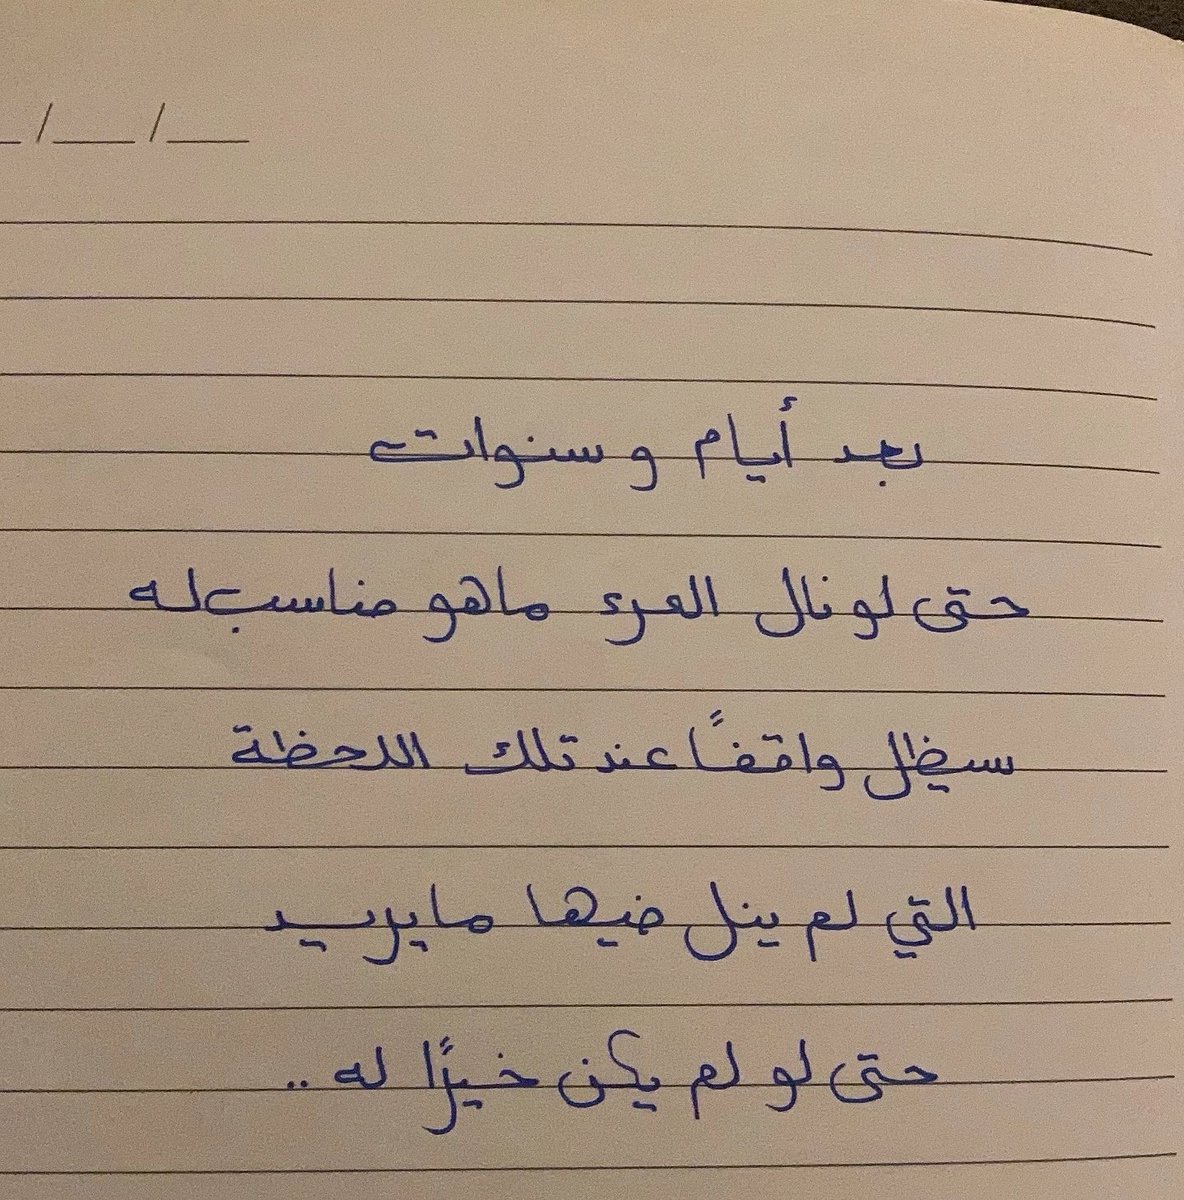 بعد أيام و سنوات
حتى لو نال المرء ما هو مناسب له
سيظل واقفاً عند تلك اللحظة
التي لم ينل فيها ما يريد
حتى لو لم يكن خيرًا له ..